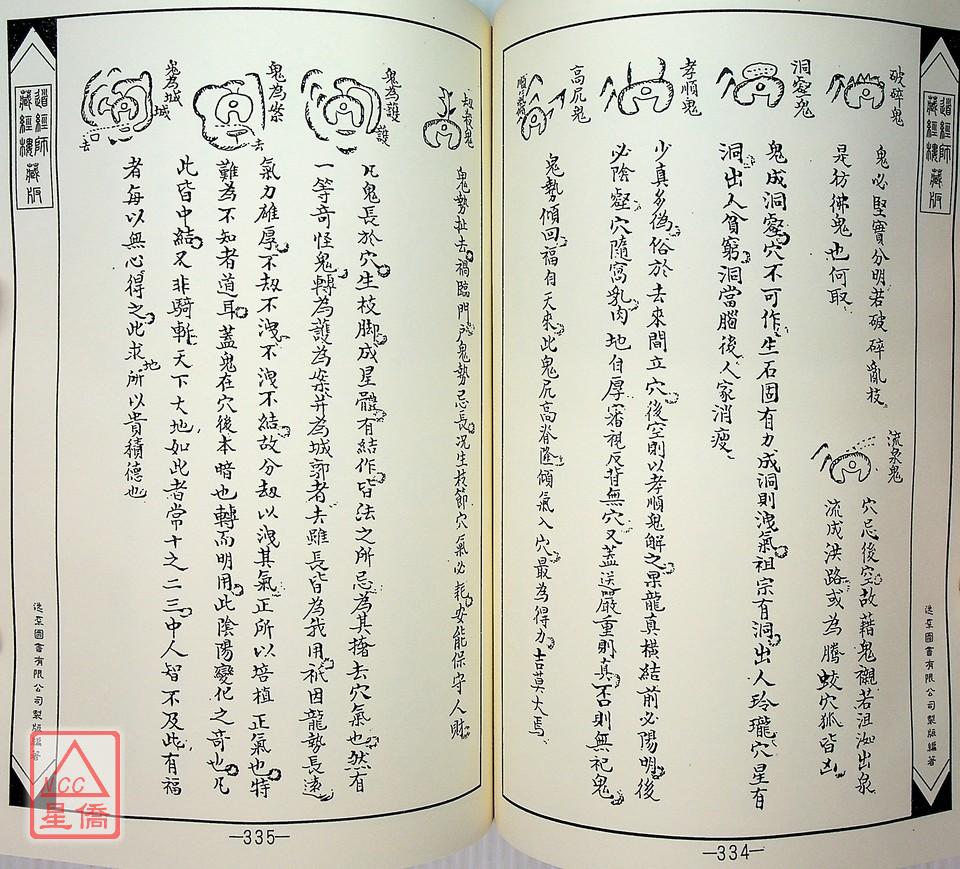 道經師
藏經樓
藏版
進源圖書有限公司製版編著
破碎鬼
鬼必堅實分明若破碎亂枝
是彷彿鬼也何取
流泉鬼
穴忌後空故藉鬼襯若沮洳出泉
流成洪路或為騰蛟穴狐皆凶
洞壑鬼
鬼成洞壑穴不可作生石固有力成洞則洩氣祖宗有洞出人玲瓏穴星有
洞出人貧窮洞當腦後人家消瘦
孝順鬼
少真多偽俗於去來間立穴後空則以孝順鬼解之果龍真橫結前必陽明後
必陰壑穴隨窩乳肉地自厚審視反背無穴又蓋送嚴重則真否則無祀鬼
高尻鬼
順
鬼勢傾回福自天來此鬼尻高脊隆傾氣入穴最為得力吉莫大焉
—334—
劫去鬼
鬼勢扯去禍臨門戶鬼勢忌長況生枝節穴氣必耗安能保守人財
鬼為護
護
凡鬼長於穴生枝脚成星體有結作皆法之所忌為其搀去穴氣也然有
一等奇怪鬼轉為護為案并為城郭者去雖長皆為我用祇因龍勢長遠
鬼為案
去
氣力雄厚不劫不洩不洩不結故分劫以洩其氣正所以培植正氣也特
難為不知者道耳蓋鬼在穴後本暗也轉而明用此陰陽變化之奇也凡
鬼為城
城
去
此皆中結又非騎斬天下大地如此者常十之二三中人智不及此有福
者每以無心得之此求地所以貴積德也
—335—
道經師
藏經樓
藏版
進源圖書有限公司製版編著
NCC
星僑